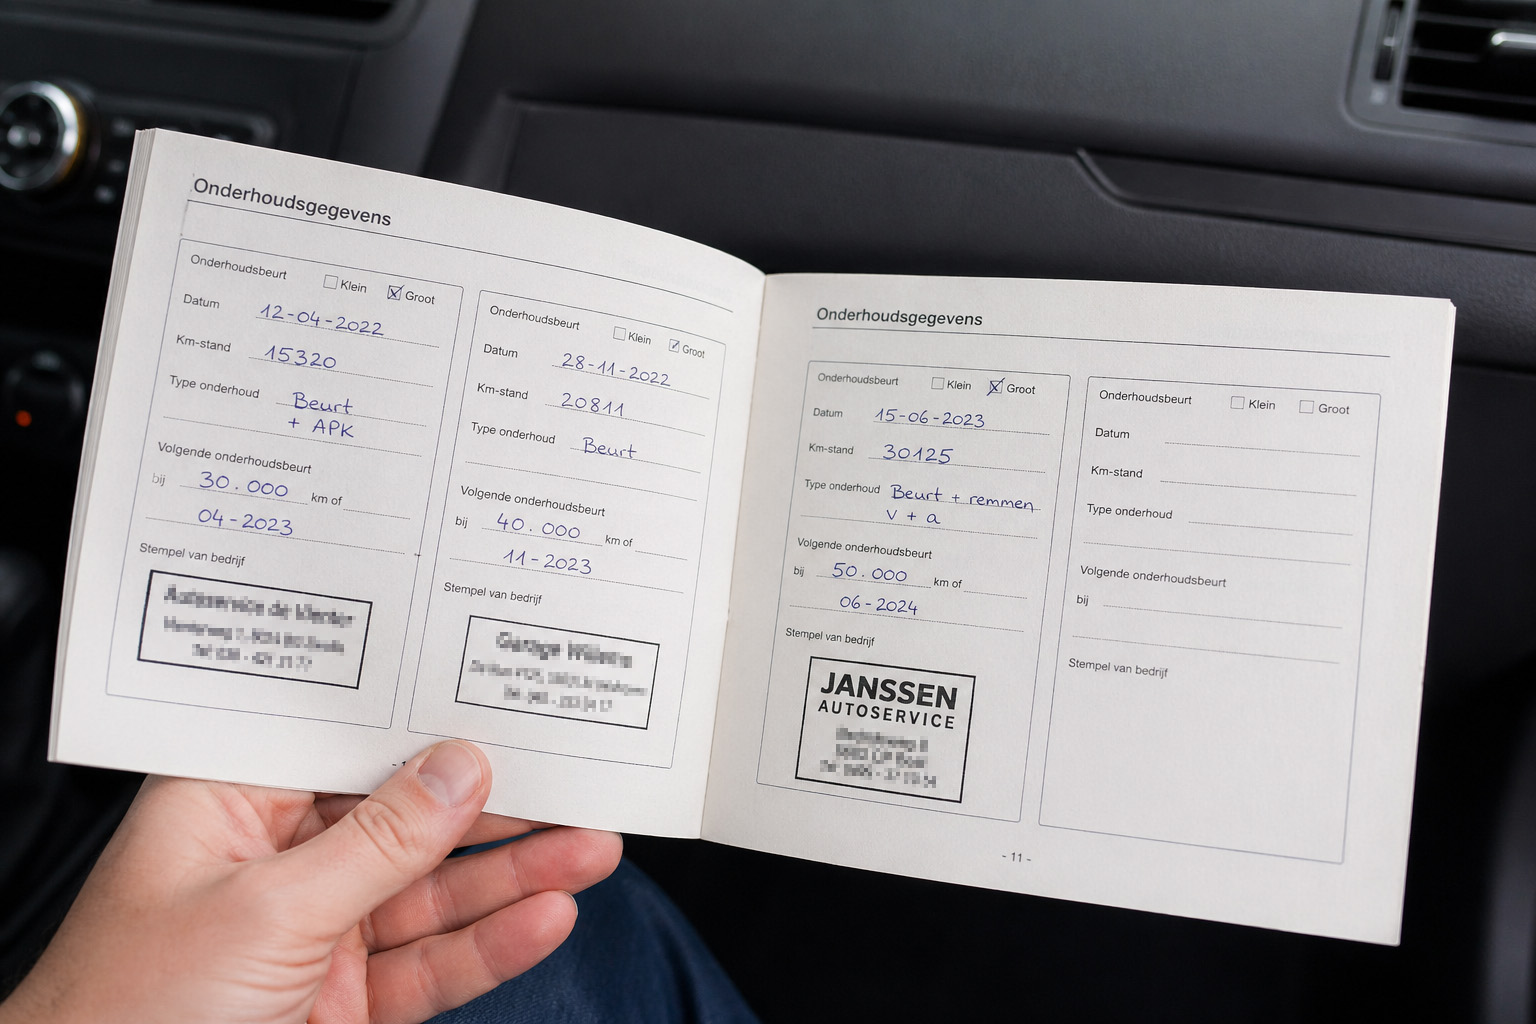 Onderhoudsgegevens
Onderhoudsbeurt Klein Groot
Datum 12-04-2022
Km-stand 15320
Type onderhoud Beurt
+ APK
Volgende onderhoudsbeurt
bij 30.000 km of
04-2023
Stempel van bedrijf
Onderhoudsbeurt Klein Groot
Datum 28-11-2022
Km-stand 20811
Type onderhoud Beurt
Volgende onderhoudsbeurt
bij 40.000 km of
11-2023
Stempel van bedrijf
Onderhoudsgegevens
Onderhoudsbeurt Klein Groot
Datum 15-06-2023
Km-stand 30125
Type onderhoud Beurt + remmen
v + a
Volgende onderhoudsbeurt
bij 50.000 km of
06-2024
Stempel van bedrijf
JANSSEN
AUTOSERVICE
Onderhoudsbeurt Klein Groot
Datum
Km-stand
Type onderhoud
Volgende onderhoudsbeurt
bij
Stempel van bedrijf
- 11 -